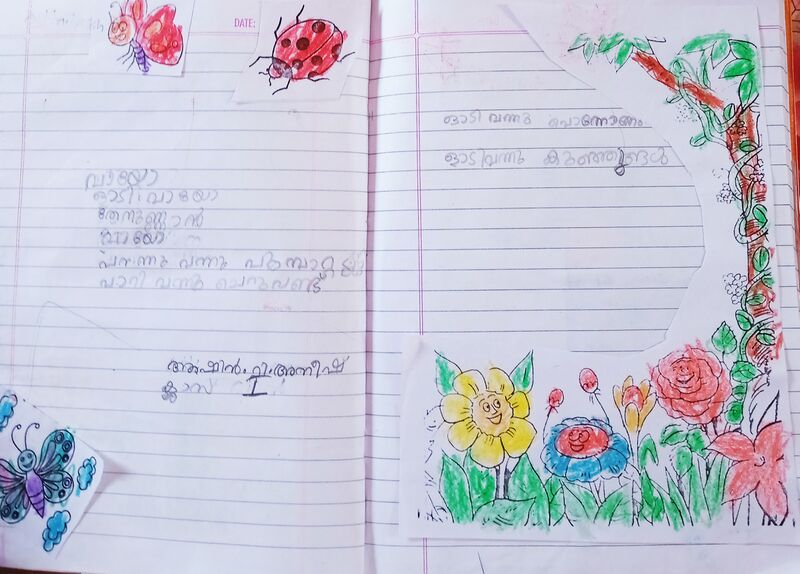 DATE:
വായോ
ഓടി വായോ
തേനുണ്ണാൻ
വായോ
പറന്നു വന്നു പൂമ്പാറ്റ
പാറി വന്നു ചെറുവണ്ട്
അൽഷിൻ. വി. അനീഷ്
ക്ലാസ് I
ഓടി വന്നു പൊന്നോണം
ഓടിവന്നു കുഞ്ഞുങ്ങൾ